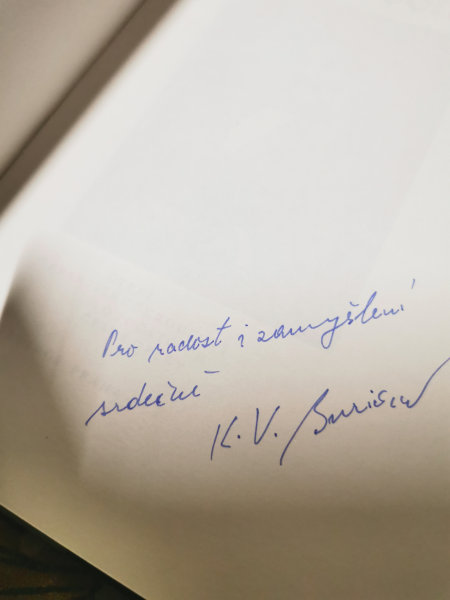 Pro radost i zamyšlení
srdečně
K. V.